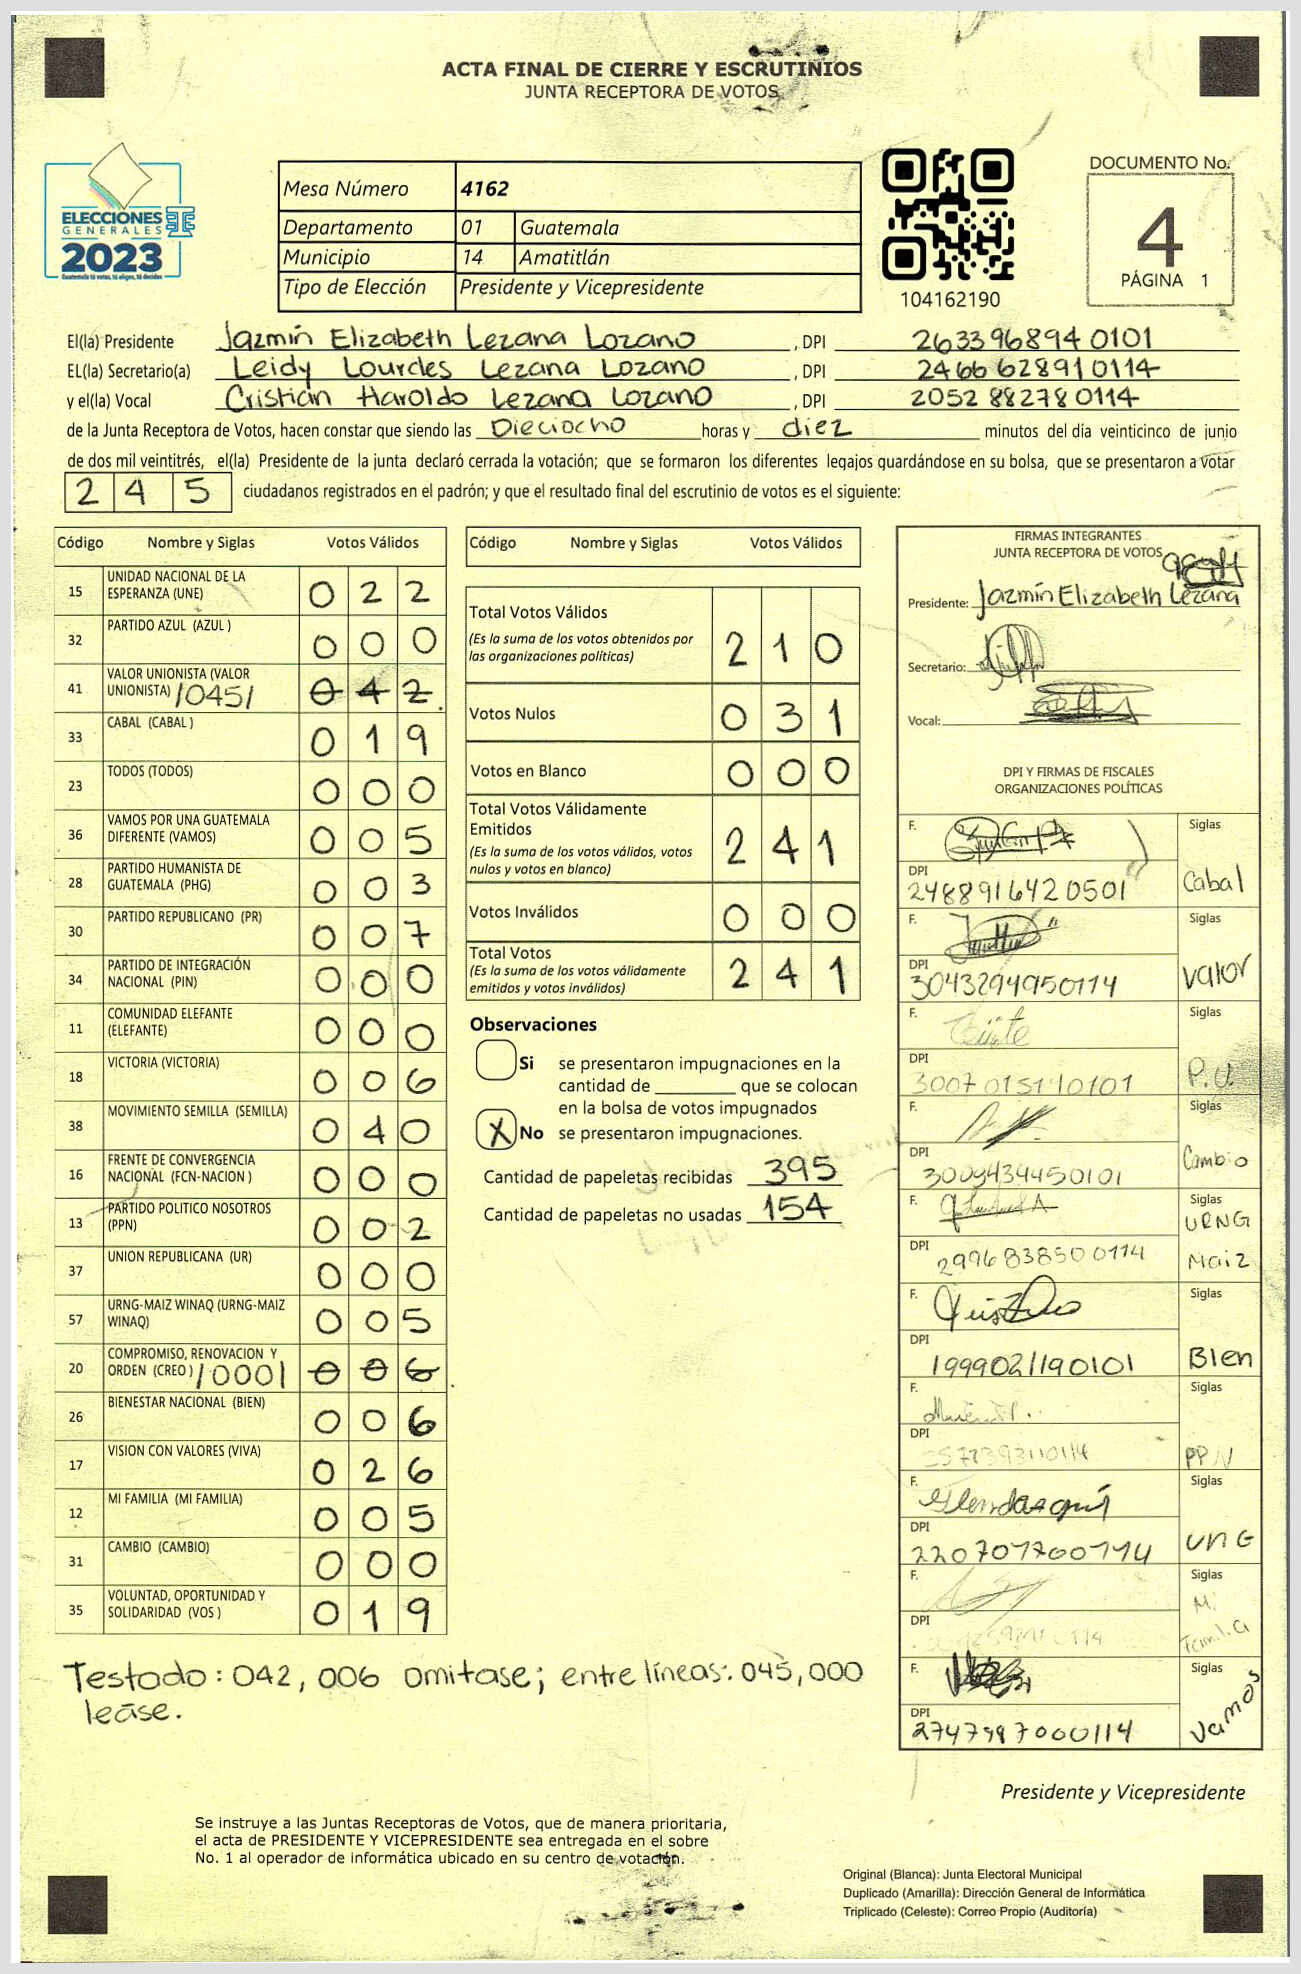 ACTA FINAL DE CIERRE Y ESCRUTINIOS
JUNTA RECEPTORA DE VOTOS
ELECCIONES
GENERALES
2023
Guatemala tú votas, tú eliges, tú decides
Mesa Número 4162
Departamento 01 Guatemala
Municipio 14 Amatitlán
Tipo de Elección Presidente y Vicepresidente
104162190
DOCUMENTO No.
4
PÁGINA 1
El(la) Presidente Jazmín Elizabeth Lezana Lozano, DPI 2633968940101
EL(la) Secretario(a) Leidy Lourdes Lezana Lozano, DPI 2466628910114
y el(la) Vocal Cristian Haroldo Lezana Lozano, DPI 2052882780114
de la Junta Receptora de Votos, hacen constar que siendo las Dieciocho horas y diez minutos del día veinticinco de junio
de dos mil veintitrés, el(la) Presidente de la junta declaró cerrada la votación; que se formaron los diferentes legajos guardándose en su bolsa, que se presentaron a votar
245 ciudadanos registrados en el padrón; y que el resultado final del escrutinio de votos es el siguiente:
Código Nombre y Siglas Votos Válidos
15 UNIDAD NACIONAL DE LA ESPERANZA (UNE) 022
32 PARTIDO AZUL (AZUL ) 000
41 VALOR UNIONISTA (VALOR UNIONISTA) /045/ 042
33 CABAL (CABAL ) 019
23 TODOS (TODOS) 000
36 VAMOS POR UNA GUATEMALA DIFERENTE (VAMOS) 005
28 PARTIDO HUMANISTA DE GUATEMALA (PHG) 003
30 PARTIDO REPUBLICANO (PR) 007
34 PARTIDO DE INTEGRACIÓN NACIONAL (PIN) 000
11 COMUNIDAD ELEFANTE (ELEFANTE) 000
18 VICTORIA (VICTORIA) 006
38 MOVIMIENTO SEMILLA (SEMILLA) 040
16 FRENTE DE CONVERGENCIA NACIONAL (FCN-NACION ) 000
13 PARTIDO POLITICO NOSOTROS (PPN) 002
37 UNION REPUBLICANA (UR) 000
57 URNG-MAIZ WINAQ (URNG-MAIZ WINAQ) 005
20 COMPROMISO, RENOVACION Y ORDEN (CREO ) /000/ 006
26 BIENESTAR NACIONAL (BIEN) 006
17 VISION CON VALORES (VIVA) 026
12 MI FAMILIA (MI FAMILIA) 005
31 CAMBIO (CAMBIO) 000
35 VOLUNTAD, OPORTUNIDAD Y SOLIDARIDAD (VOS ) 019
Testado: 042, 006 omitase; entre líneas: 045,000
lease.
Código Nombre y Siglas Votos Válidos
Total Votos Válidos 210
(Es la suma de los votos obtenidos por
las organizaciones políticas)
Votos Nulos 031
Votos en Blanco 000
Total Votos Válidamente
Emitidos 241
(Es la suma de los votos válidos, votos
nulos y votos en blanco)
Votos Inválidos 000
Total Votos 241
(Es la suma de los votos válidamente
emitidos y votos inválidos)
Observaciones
Si se presentaron impugnaciones en la
cantidad de ________ que se colocan
en la bolsa de votos impugnados
X No se presentaron impugnaciones.
Cantidad de papeletas recibidas 395
Cantidad de papeletas no usadas 154
FIRMAS INTEGRANTES
JUNTA RECEPTORA DE VOTOS
Presidente: Jazmín Elizabeth Lezana
Secretario:
Vocal:
DPI Y FIRMAS DE FISCALES
ORGANIZACIONES POLÍTICAS
F. Siglas
DPI 2488916420501 Cabal
F. Siglas
DPI 3043294950114 Valor
F. Siglas
DPI P.U.
F. Siglas
DPI 3009434450101 Cambio
F. Siglas
URNG
DPI 2996838500114 Maiz
F. Siglas
DPI 1999021190101 Bien
F. Siglas
DPI PPN
F. Siglas
DPI 2207017700114 UNE
F. Siglas
DPI Mi Familia
F. Siglas
DPI Vamos
Presidente y Vicepresidente
Se instruye a las Juntas Receptoras de Votos, que de manera prioritaria,
el acta de PRESIDENTE Y VICEPRESIDENTE sea entregada en el sobre
No. 1 al operador de informática ubicado en su centro de votación.
Original (Blanca): Junta Electoral Municipal
Duplicado (Amarilla): Dirección General de Informática
Triplicado (Celeste): Correo Propio (Auditoría)